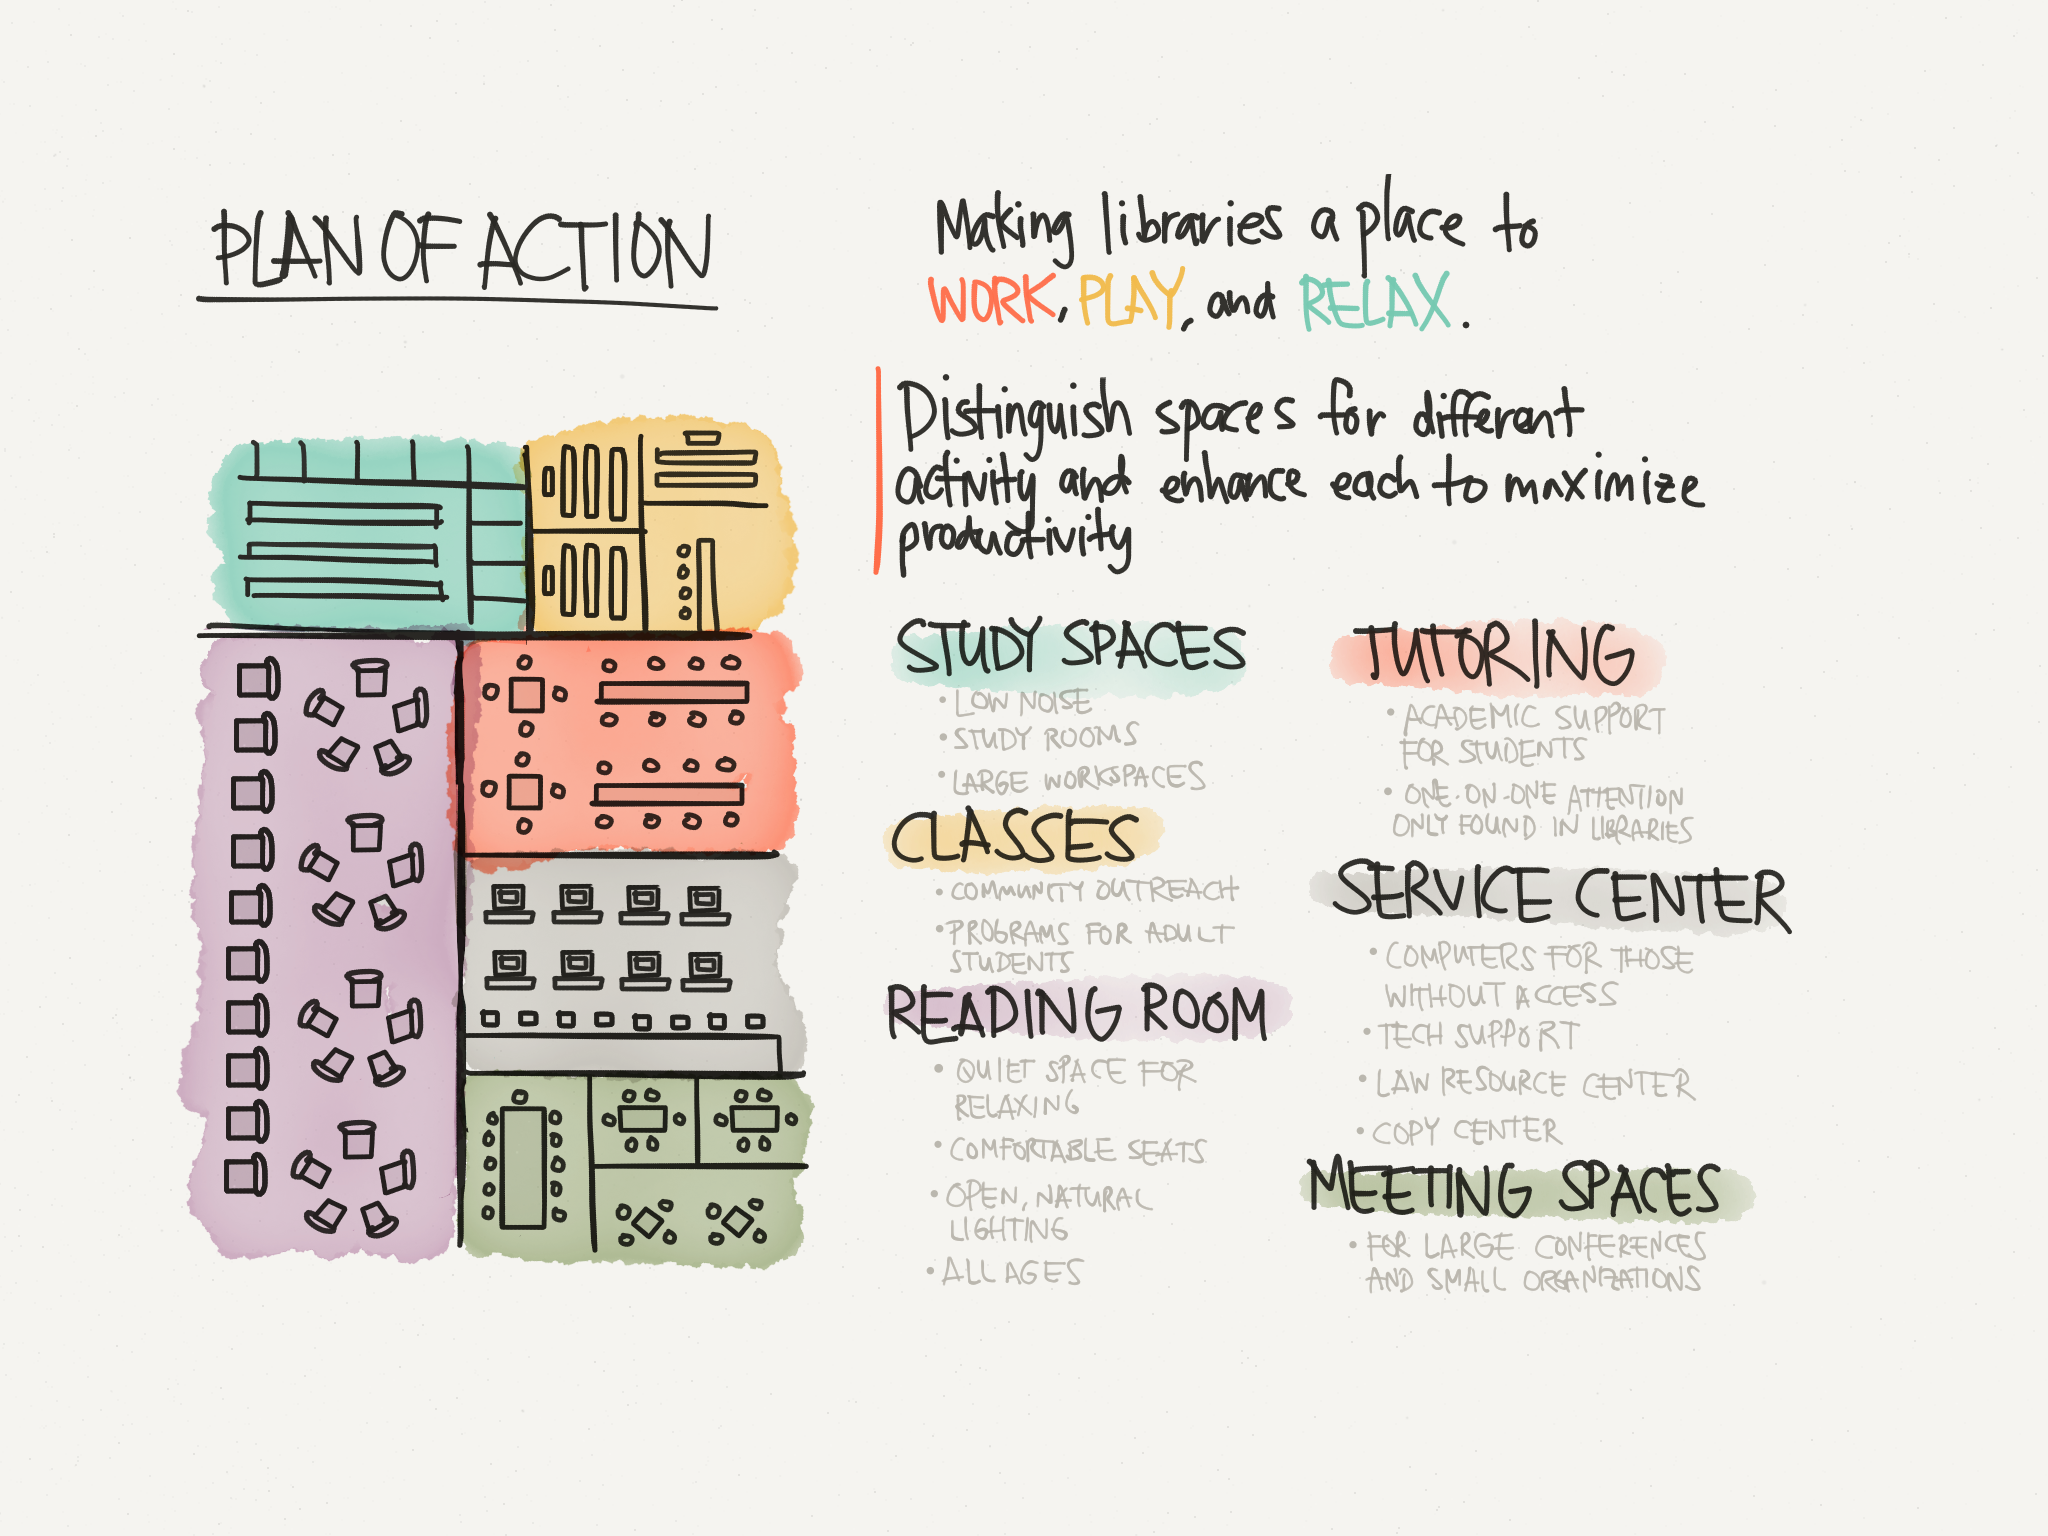 PLAN OF ACTION
Making libraries a place to
WORK, PLAY, and RELAX.
Distinguish spaces for different
activity and enhance each to maximize
productivity
STUDY SPACES
• LOW NOISE
• STUDY ROOMS
• LARGE WORKSPACES
CLASSES
• COMMUNITY OUTREACH
• PROGRAMS FOR ADULT
STUDENTS
READING ROOM
• QUIET SPACE FOR
RELAXING
• COMFORTABLE SEATS
• OPEN, NATURAL
LIGHTING
• ALL AGES
TUTORING
• ACADEMIC SUPPORT
FOR STUDENTS
• ONE-ON-ONE ATTENTION
ONLY FOUND IN LIBRARIES
SERVICE CENTER
• COMPUTERS FOR THOSE
WITHOUT ACCESS
• TECH SUPPORT
• LAW RESOURCE CENTER
• COPY CENTER
MEETING SPACES
• FOR LARGE CONFERENCES
AND SMALL ORGANIZATIONS